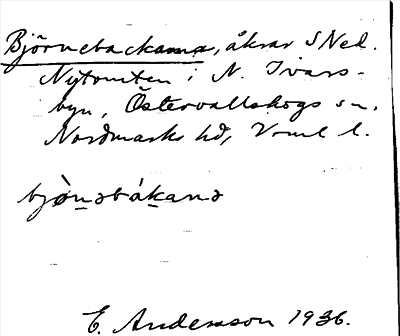 Björnebackarna, åkrar S Ned.
Nytomten i N. Ivars-
byn, Östervallskogs sn,
Nordmarks hd, Vrml l.
bjò̱nəbákanə
E. Andersson 1936.